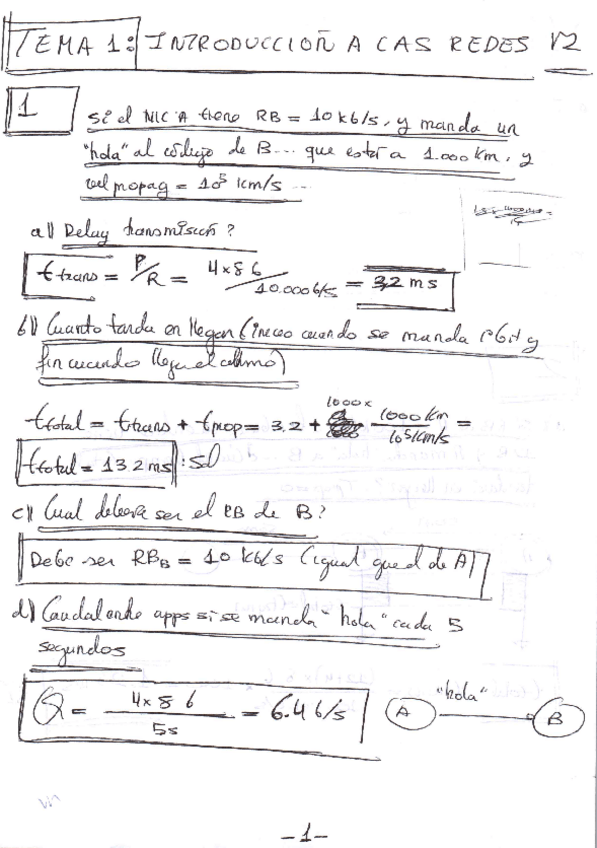 TEMA 1: INTRODUCCIOÑ A CAS REDES V2
1
si el NIC A tiene RB = 10 kb/s, y manda un
"hola" al código de B... que está a 1.000 km, y
vel propag = 10⁵ km/s ...
a) Delay transmisión?
t trans = P/R = 4x8 b / 10.000 b/s = 3,2 ms
b) Cuanto tarda en llegar (inicio cuando se manda 1º bit y
fin cuando llega el último)
t total = t trans + t prop = 3.2 + 1000 x 1000 km / 10⁵ km/s =
t total = 13.2 ms : sol
c) Cual debera ser el RB de B?
Debe ser RB_B = 10 kb/s (igual que el de A)
d) Caudal entre apps si se manda "hola" cada 5
segundos
Q = 4x8 b / 5s = 6.4 b/s
"hola"
A
B
-1-